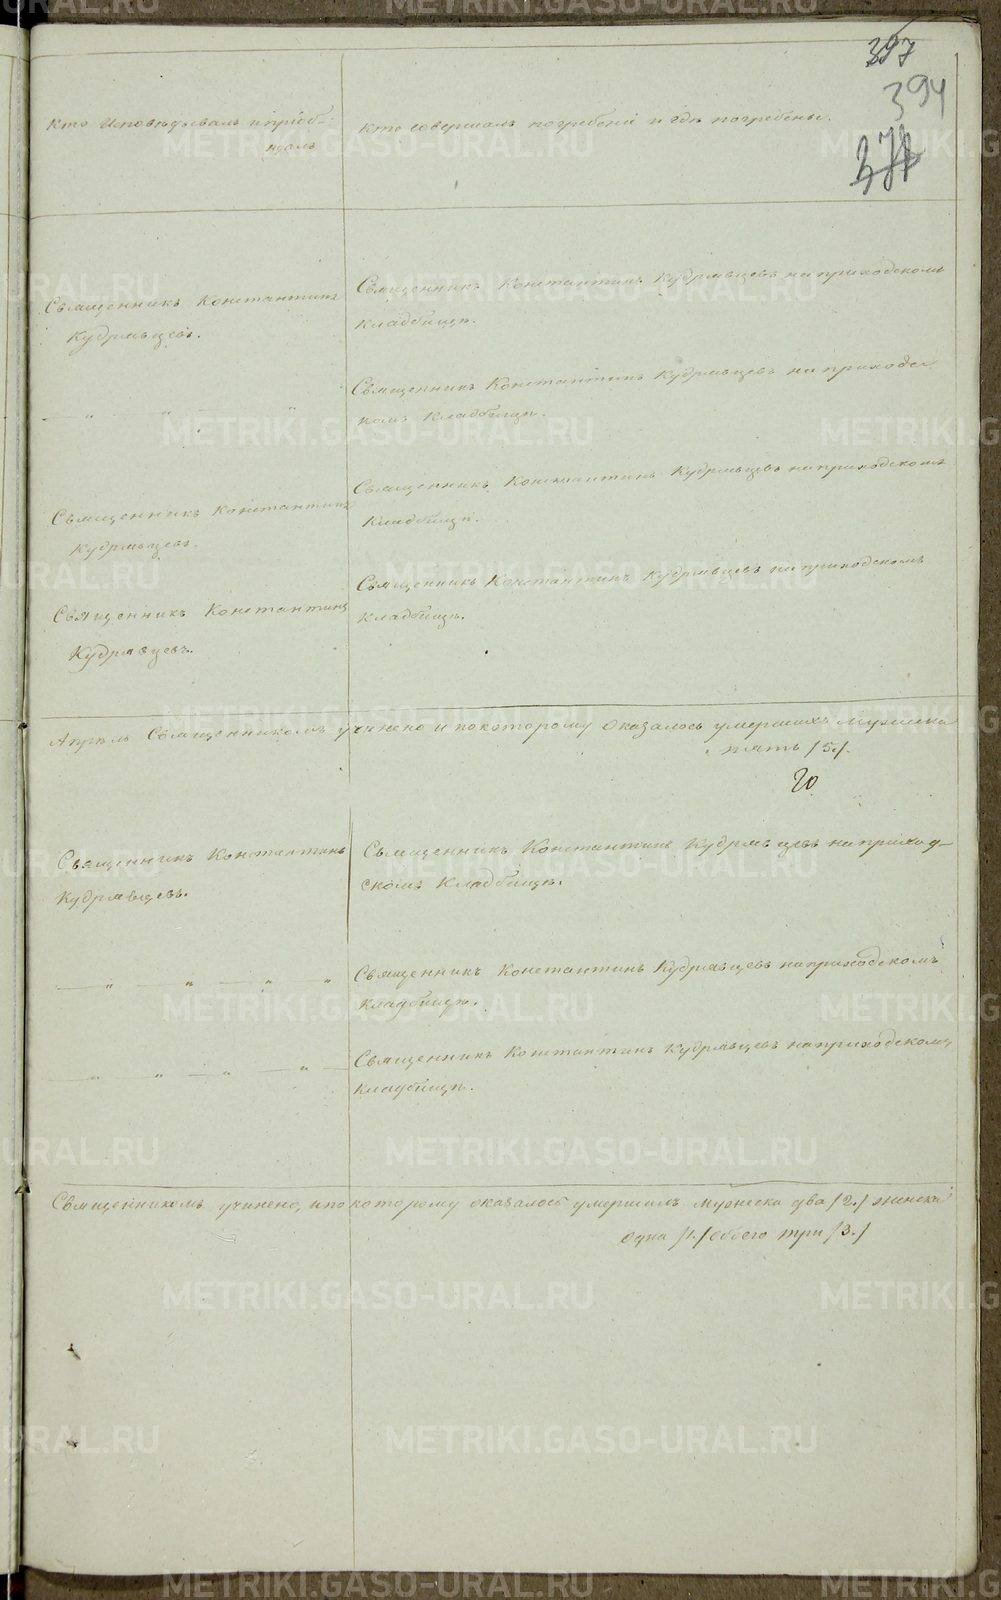 397
394
Кто Исповѣдывалъ и пріоб-
щалъ
Кто совершалъ погребеніе и гдѣ погребены.
Священникъ Константинъ
Кудрявцевъ.
Священникъ Константинъ Кудрявцевъ на приходскомъ
Кладбищѣ.
— „ — „ — „
Священникъ Константинъ Кудрявцевъ на приходс-
комъ Кладбищѣ.
Священникъ Константинъ
Кудрявцевъ.
Священникъ Константинъ Кудрявцевъ на приходскомъ
Кладбищѣ.
Священникъ Константинъ
Кудрявцевъ.
Священникъ Константинъ Кудрявцевъ на приходскомъ
Кладбищѣ.
Апрѣль Священникомъ учинено и по которому оказалось умершихъ Мужеска
пять /5./.
20
Священникъ Константинъ
Кудрявцевъ.
Священникъ Константинъ Кудрявцевъ на приход-
скомъ Кладбищѣ.
— „ — „ — „ — „
Священникъ Константинъ Кудрявцевъ на приходскомъ
Кладбищѣ.
— „ — „ — „ — „
Священникъ Константинъ Кудрявцевъ на приходскомъ
Кладбищѣ.
Священникомъ учинено, и по которому оказалось умершихъ мужеска два /2./ женска
одна /1./ обоего три /3./
METRIKI.GASO-URAL.RU